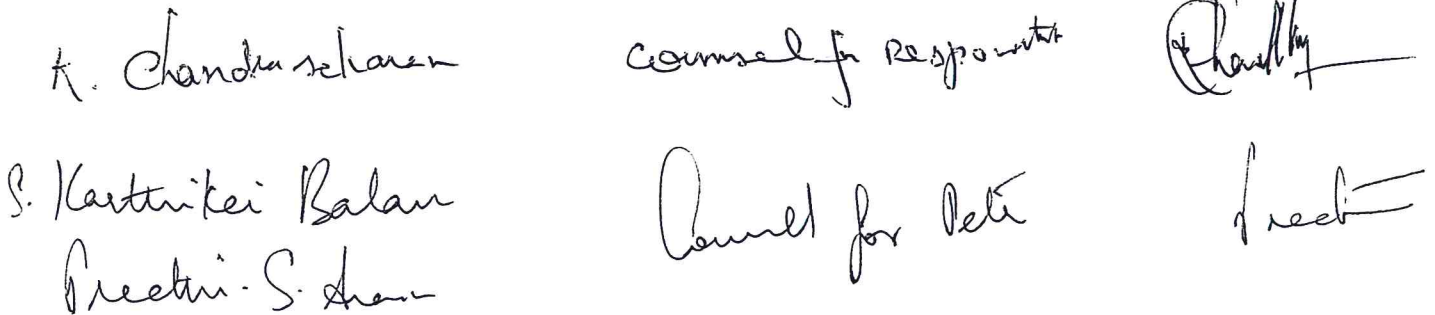 K. Chandrasekaran Counsel for Respondent
S. Karthikei Balan Counsel for Peti
Preethi. S.